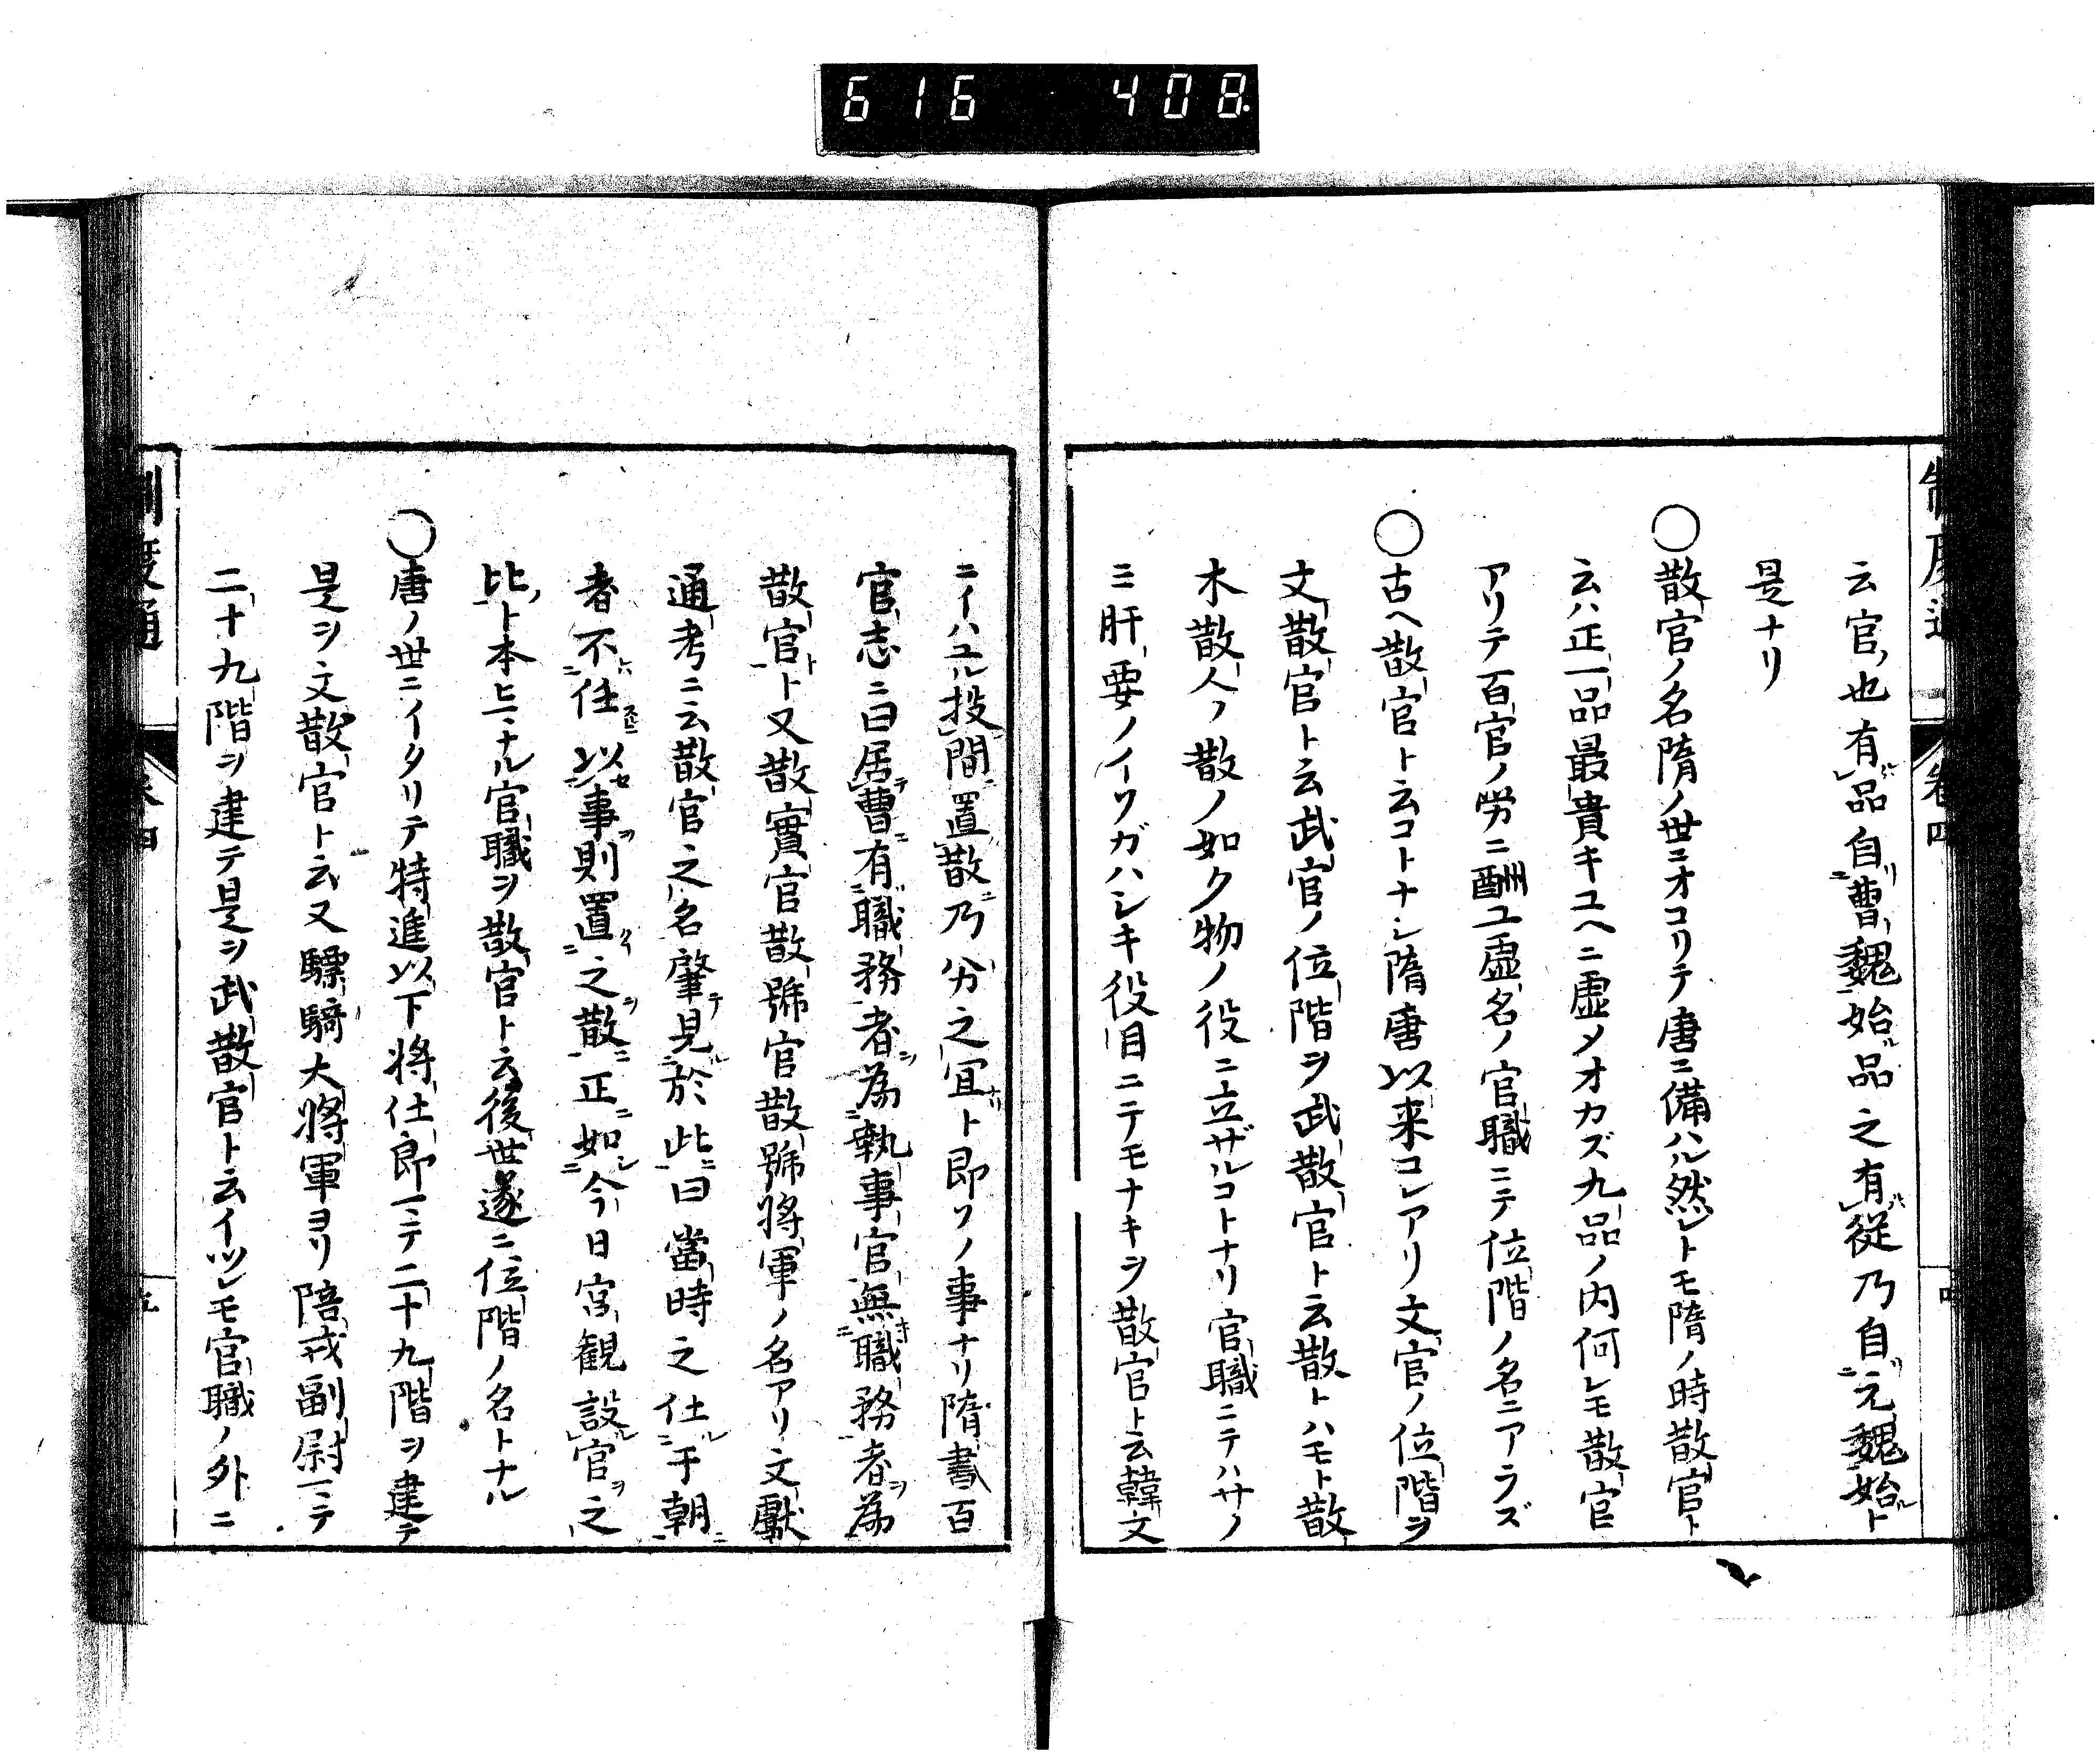 616 408
制度通 卷四 四
云官也有品自曹魏始品之有從乃自元魏始ト
是ナリ
〇散官ノ名隋ノ世ニオコリテ唐ニ備ハル然レトモ隋ノ時散官ト
云ハ正一品最貴キユヘニ虚メオカズ九品ノ内何レモ散官
アリテ百官ノ労ニ酬ユ虚名ノ官職ニテ位階ノ名ニアラズ
〇古ヘ散官ト云コトナシ隋唐以来コレアリ文官ノ位階ヲ
文散官ト云武官ノ位階ヲ武散官ト云散トハモト散
木散人ノ散ノ如ク物ノ役ニ立ザルコトナリ官職ニテハサノ
ミ肝要ノイソガハシキ役目ニテモナキヲ散官ト云韓文
ニイハユル投間置散乃分之宜ト即ソノ事ナリ隋書百
官志ニ曰居曹有職務者為執事官無職務者為
散官ト又散實官散號官散號將軍ノ名アリ文獻
通考ニ云散官之名肇見於此曰當時之仕于朝
者不任以事則置之散正如今日宮観設官之
比ト本ヒマナル官職ヲ散官ト云後世遂ニ位階ノ名トナル
〇唐ノ世ニイタリテ特進以下將仕郎マテ二十九階ヲ建テ
是ヲ文散官ト云又驃騎大將軍ヨリ陪戎副尉マテ
二十九階ヲ建テ是ヲ武散官ト云イツレモ官職ノ外ニ
制度通 卷四 五